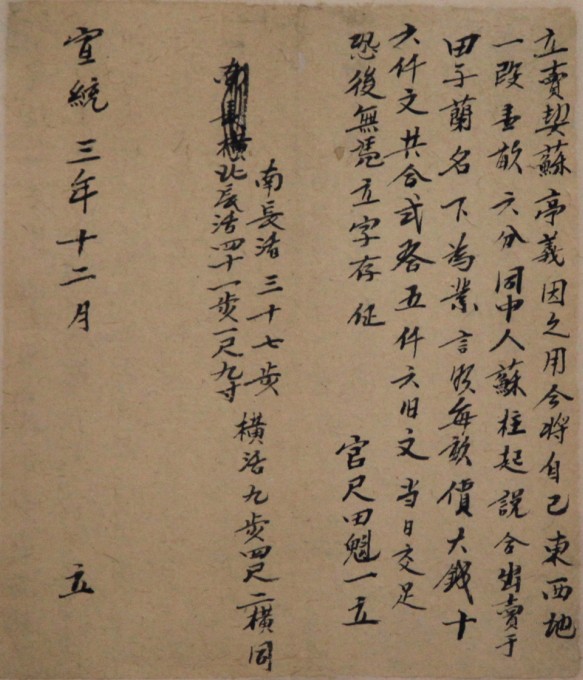 立賣契蘇亭義因乏用今將自己東西地
一段壹畝六分同中人蘇柱起說合出賣于
田子蘭名下為業言明每畝價大錢十
六仟文共合弍拾五仟六百文当日交足
恐後無凴立字存证
官尺田魁一立
南長活三十七步
北長活四十一步一尺九寸
橫活九步四尺二橫同
宣統三年十二月 立